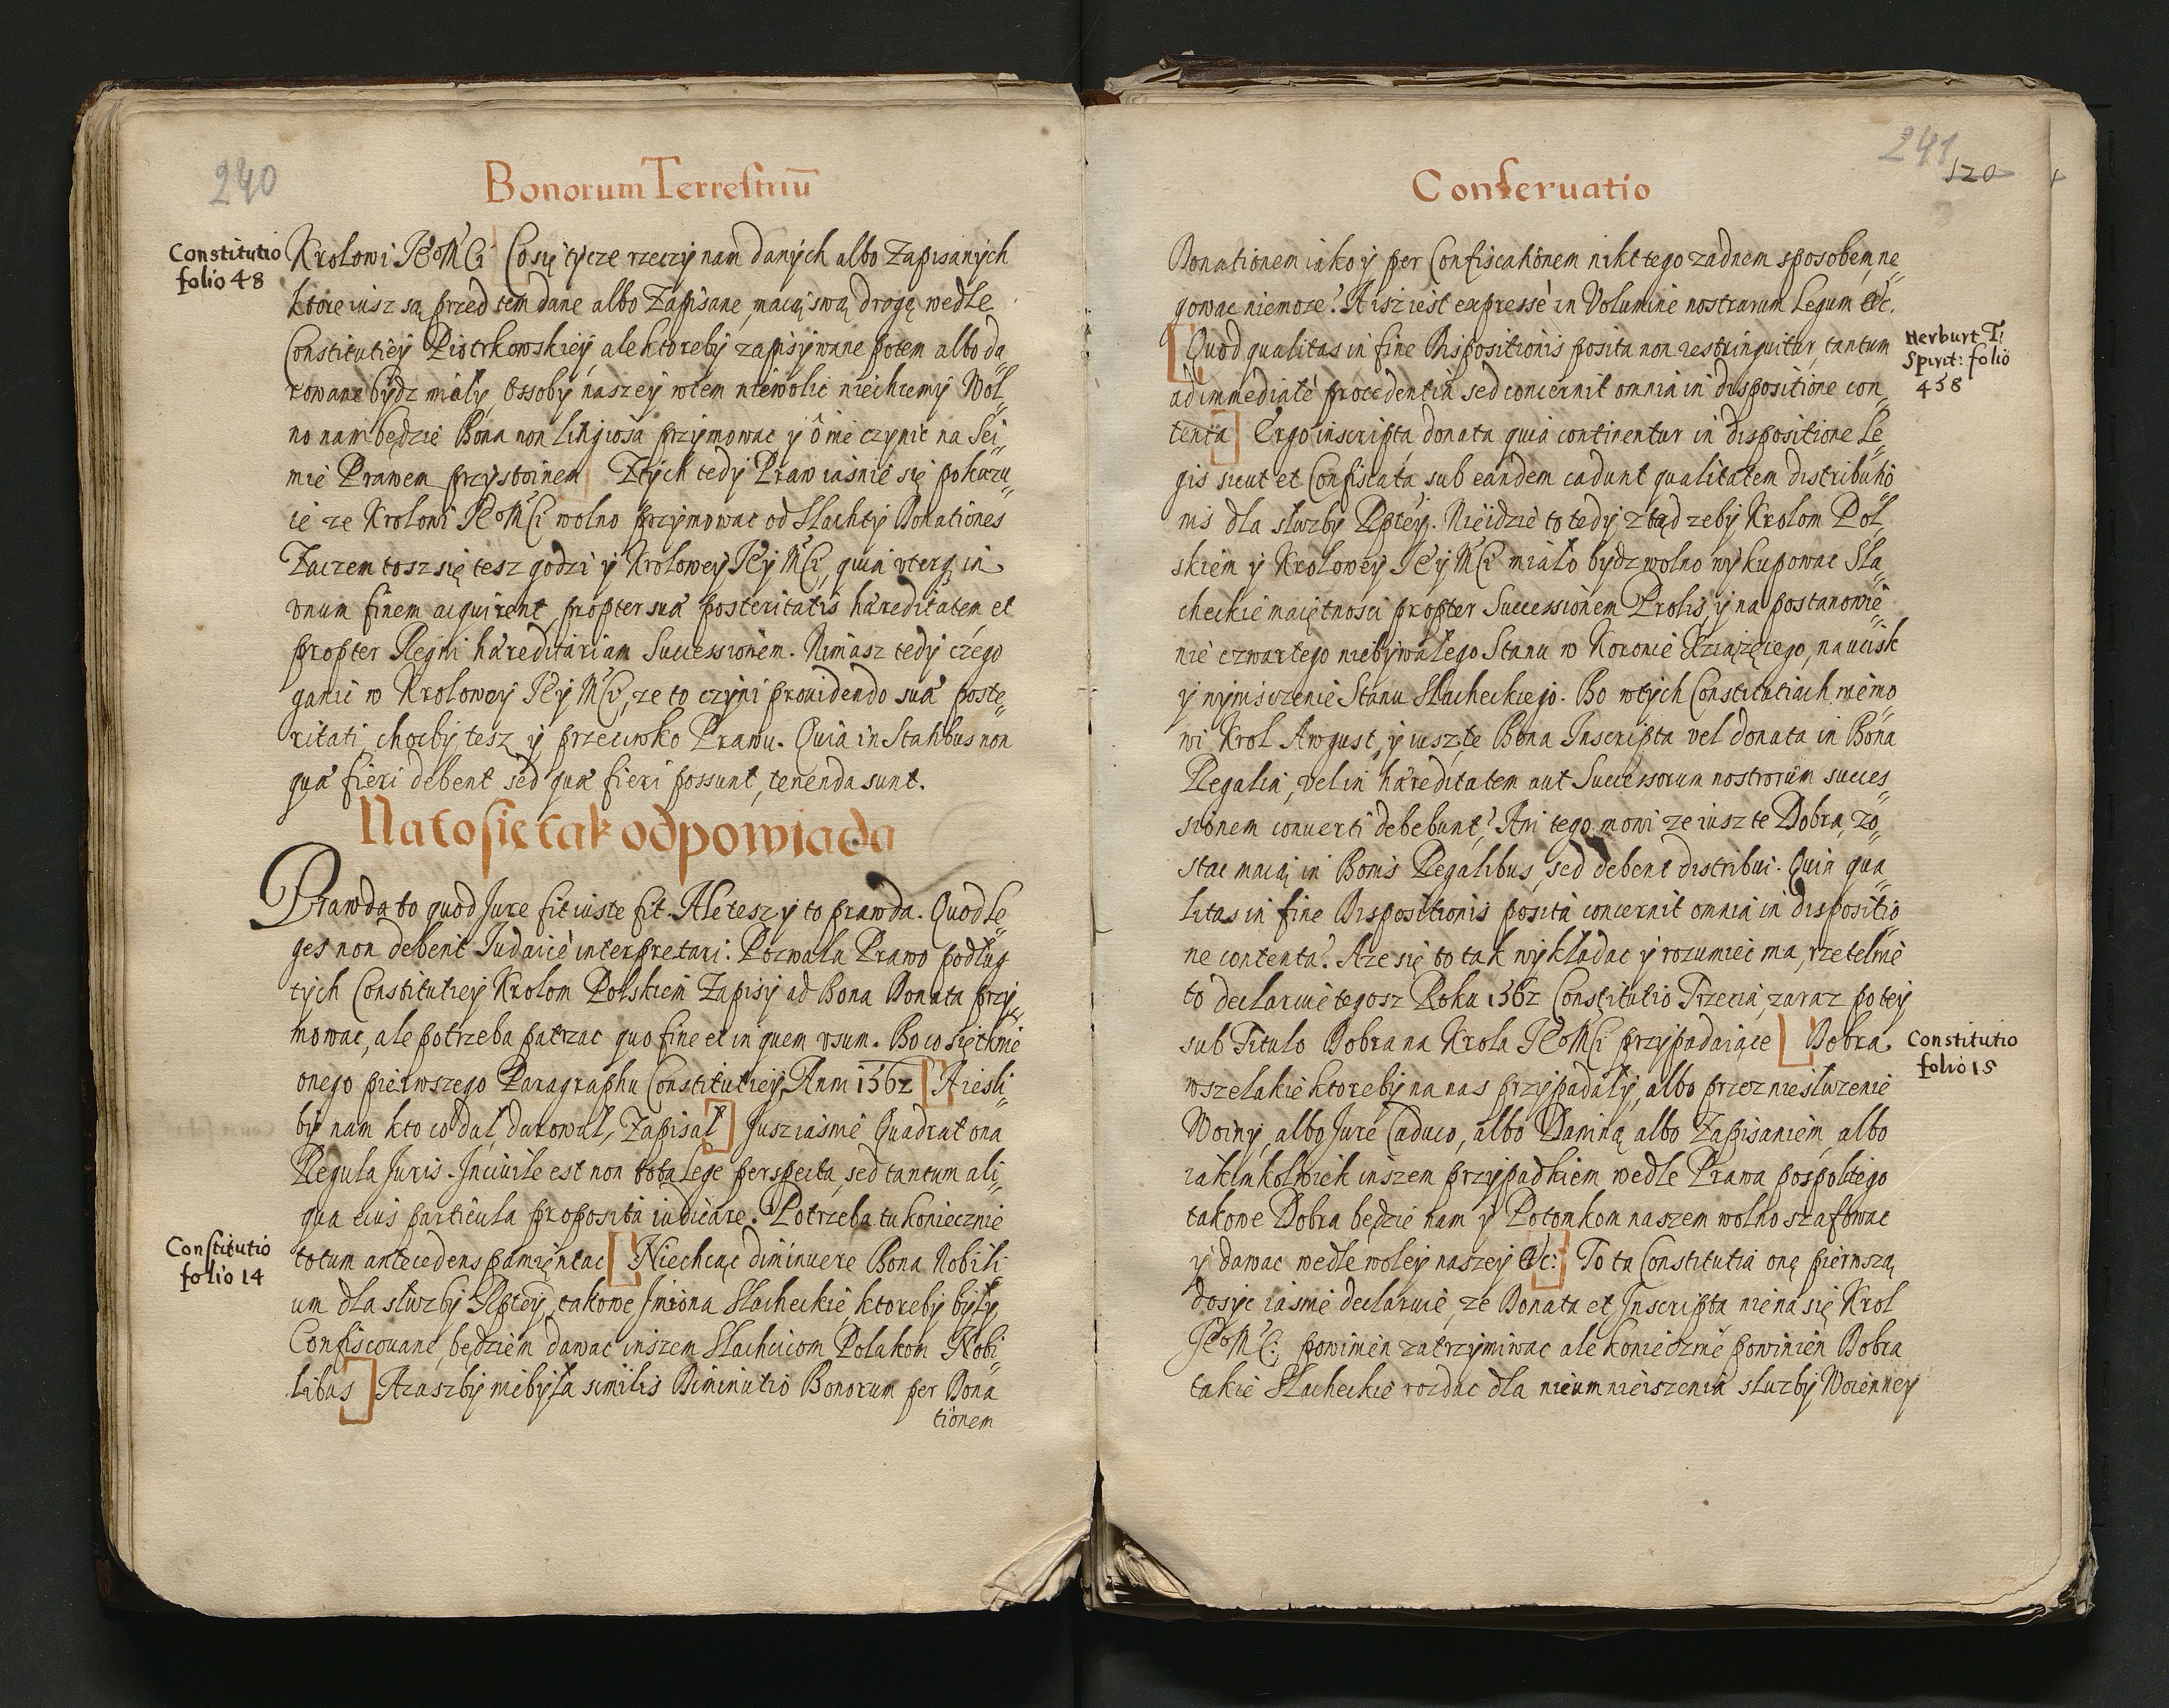 240
Bonorum Terrestriū
Constitutio
folio 48
Krolowi JEoMCi Co się tycze rzeczy nam danych albo Zapisanych
ktore iusz są przed tem dane albo Zapisane, maią swą drogę wedle
Constitutiey Piotrkowskiey, ale ktoreby zapisywane potem albo da„
rowane bydz miały, Ossoby naszey wtem niewolic niechcemy Wol„
no nam będzie Bona non litigiosa przymowac y o nie czynic na Sei„
mie Prawem przystoinem Ztych tedy Praw iasnie się pokazu„
ie ze Krolowi JEoMCi wolno przymowac od Slachty Donationes
Zaczem tosz się tesz godzi y Krolowey JEy MCi, quia uterq in
vnum finem acquirent, propter suæ posteritatis hæreditatem, et
propter Regni hæreditariam Successionem. Nimasz tedy czego
ganic w Krolowey JEy MCi, ze to czyni prouidendo suæ poste„
ritati, chocby tesz y przeciwko Prawu. Quia in Statibus non
quæ fieri debent sed quæ fieri possunt, tenenda sunt.
Na to się tak odpowiada
Prawda to quod Jure fit iuste fit. Ale tesz y to prawda. Quod Le„
ges non debent Iudaicè interpretari. Pozwala Prawo podług
tych Constitutiey Krolom Polskiem Zapisy ad Bona Donata przy„
mowac, ale potrzeba patrzac quo fine et in quem vsum. Bo co się tknie
onego pierwszego Paragraphu Constitutiey Anni 1562 [Aiesli„
by nam kto co dal, darowal, Zapisał] Jusz iasnie Quadrat ona
Regula Juris. Inciuile est non tota Lege perspecta, sed tantum ali„
qua eius particula proposita iudicare. Potrzeba tu koniecznie
Constitutio
folio 14
totum antecedens pamiętac [Niechcąc diminuere Bona Nobili
um dla słuzby Rptey, takowe Jmiona Slacheckie, ktoreby były
Confiscovane, będziem dawac inszem Slachcicom Polakom Nobi„
libus] Azaszby niebyła similis Diminutio Bonorum per Dona
tionem
241
120
Conseruatio
Donationem iako y per Confiscationem nikt tego zadnem sposobem, ne„
gowac niemoze? A isz iest expressè in Volumine nostrarum Legum etc.
Herburt T:
Spirit: folio
458
[Quod qualitas in fine Dispositionis posita non restringuitur, tantum
ad immediatè procedentia sed concernit omnia in dispositione con„
tenta] Ergo inscripta donata quia continentur in dispositione Le„
gis sicut et Confiscata sub eandem cadunt qualitatem distributio
nis dla słuzby Rptey. Nieidzie to tedy ztąd zeby Krolom Pol„
skiem y Krolowey JEy MCi miało bydz wolno wykupowac Sla„
checkie maiętnosci propter Successionem Prolis, y na postanowie„
nie czwartego niebywałego Stanu w Koronie Xziązęcego, na ucisk
y wynisczenie Stanu Slacheckiego. Bo wtych Constitutiach niemo„
wi Krol Awgust, y iusz, te Bona Inscripta vel donata in Bona
Regalia, vel in hæreditatem aut Successorum nostrorum succes„
sionem conuerti debebunt? Ani tego mowi ze iusz te Dobra zo„
stac maią in Bonis Regalibus, sed debent distribui. Quia qua„
litas in fine Dispositionis posita concernit omnia in dispositio„
ne contenta? A ze się to tak wykładac y rozumiec ma, rzetelnie
to declaruie tegosz Roku 1562 Constitutio Trzecia, zaraz po tey
Constitutio
folio 15
sub Titulo Dobra na Krola JEoMCi przypadaiące [Dobra
wszelakie ktoreby na nas przypadały, albo przez niesłuzenie
Woiny, albo Jure Caduco, albo Daniną albo Zapisaniem, albo
iakimkolwiek inszem przypadkiem wedle Prawa pospolitego
takowe Dobra będzie nam y Potomkom naszem wolno szafowac
y dawac wedle woley naszey etc:] To ta Constitutia onę pierwszą
dosyc iasnie declaruie, ze Donata et Inscripta nie na się Krol
JEoMCi powinien zatrzymiwac ale koniecznie powinien Dobra
takie Slacheckie rozdac dla nieumnieiszenia słuzby Woienney